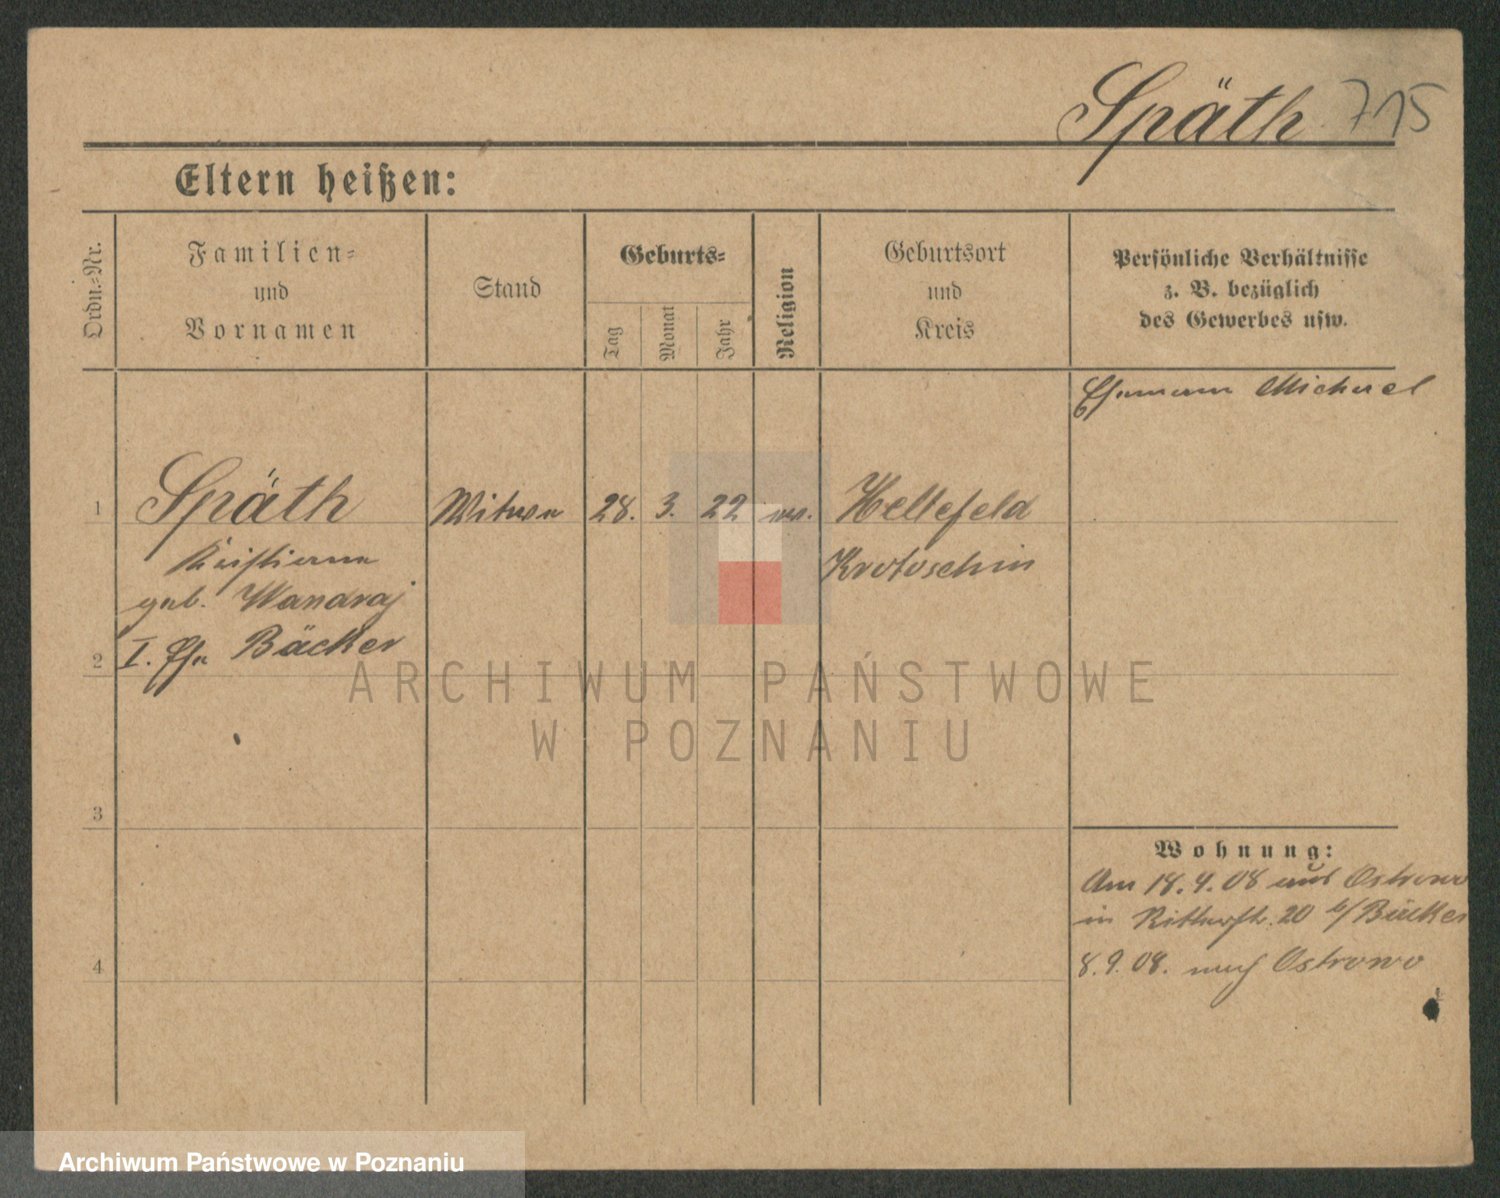 Späth 715
Eltern heißen:
Ordn.-Nr.
Familien-
und
Vornamen
Stand
Geburts-
Tag
Monat
Jahr
Religion
Geburtsort
und
Kreis
Persönliche Verhältnisse
z. B. bezüglich
des Gewerbes usw.
Ehemann Michael
1 Späth Witwe 28. 3. 22 Hellefeld
Kristiane Krotoschin
geb. Wandraj
2 I. Ehe Bäcker
3
4
Wohnung:
Am 18.4.08 aus Ostrowo
in Ritterstr. 20 b/ Bäcker
8.9.08. nach Ostrowo
ARCHIWUM PAŃSTWOWE
W POZNANIU
Archiwum Państwowe w Poznaniu